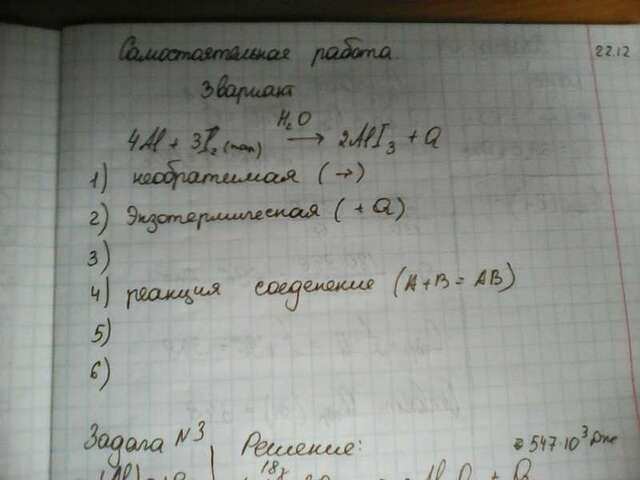 Самостоятельная работа.
22.12
3 вариант
H₂O
4Al + 3I₂ (тв) → 2AlI₃ + Q
1) необратимая (→)
2) Экзотермическая (+Q)
3)
4) реакция соеденение (A+B = AB)
5)
6)
Задача №3 Решение: 547·10³
18г